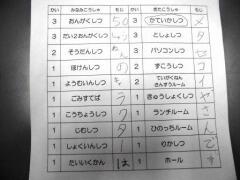 かい みなみこうしゃ もじ かい きたこうしゃ もじ
3 おんがくしつ 3 かていかしつ メ
3 だい2おんがくしつ 3 としょしつ タ
2 そうだんしつ 3 パソコンしつ
1 ほけんしつ 2 ずこうしつ コ
1 ようむいんしつ 2 ていがくねんさんすうルーム イ
1 ごみすてば ラ 1 きゅうしょくしつ や
1 こうちょうしつ ワ 1 ランチルーム さ
1 じむしつ タ 1 ひのっちルーム ん
1 しょくいんしつ 1 りかしつ で
1 たいいくかん は 1 ホール す